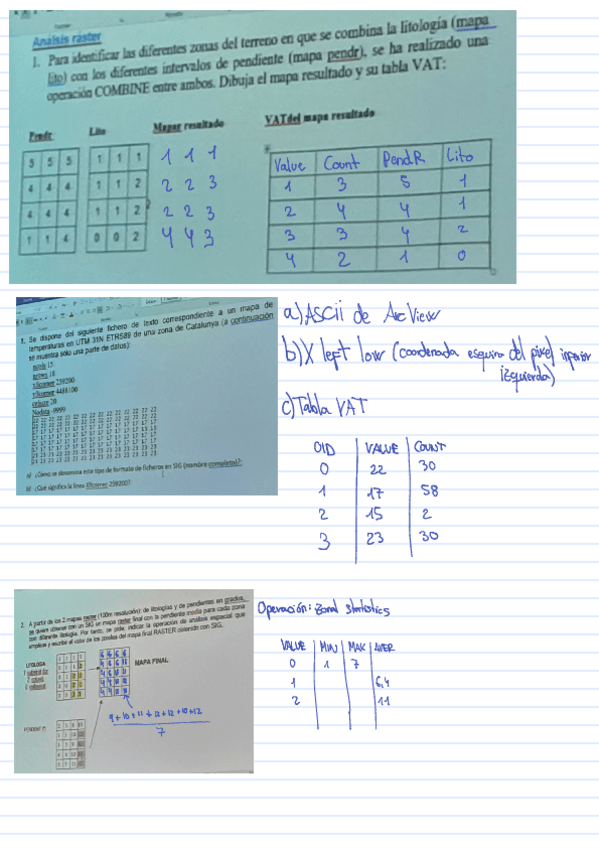 Análisis ráster
1. Para identificar las diferentes zonas del terreno en que se combina la litología (mapa
lito) con los diferentes intervalos de pendiente (mapa pendr), se ha realizado una
operación COMBINE entre ambos. Dibuja el mapa resultado y su tabla VAT:
Pendr Lito Mapar resultado VAT del mapa resultado
5 5 5 1 1 1 1 1 1 Value Count PendR Lito
4 4 4 1 1 2 2 2 3 1 3 5 1
4 4 4 1 1 2 2 2 3 2 4 4 1
1 1 4 0 0 2 4 4 3 3 3 4 2
4 2 1 0
1. Se dispone del siguiente fichero de texto correspondiente a un mapa de
temperaturas en UTM 31N ETRS89 de una zona de Catalunya (a continuación
se muestra sólo una parte de datos):
ncols 15
nrows 18
xllcorner 239200
yllcorner 4488100
cellsize 20
Nodata -9999
22 22 22 22 22 22 22 22 22 22 22 22 22 22 22
a) ¿Cómo se denomina este tipo de formato de ficheros en SIG (nombre completo)?:
b) ¿Qué significa la línea Xllcorner 239200?
a) ASCii de ArcView
b) X left low (coordenada esquina del pixel inferior
izquierda)
c) Tabla VAT
OID VALUE COUNT
0 22 30
1 17 58
2 15 2
3 23 30
2. A partir de los 2 mapas raster (100m resolución): de litologías y de pendientes en grados,
se quiere obtener con un SIG un mapa raster final con la pendiente media para cada zona
con diferente litología. Por tanto, se pide, indicar la operación de análisis espacial que
emplees y escribir el valor de los píxeles del mapa final RASTER obtenido con SIG.
LITOLOGIA
MAPA FINAL
PENDENT (º)
9+10+11+12+12+10+12
7
Operación: Zonal Statistics
VALUE MIN MAX AVER
0 1 7
1 6,4
2 11